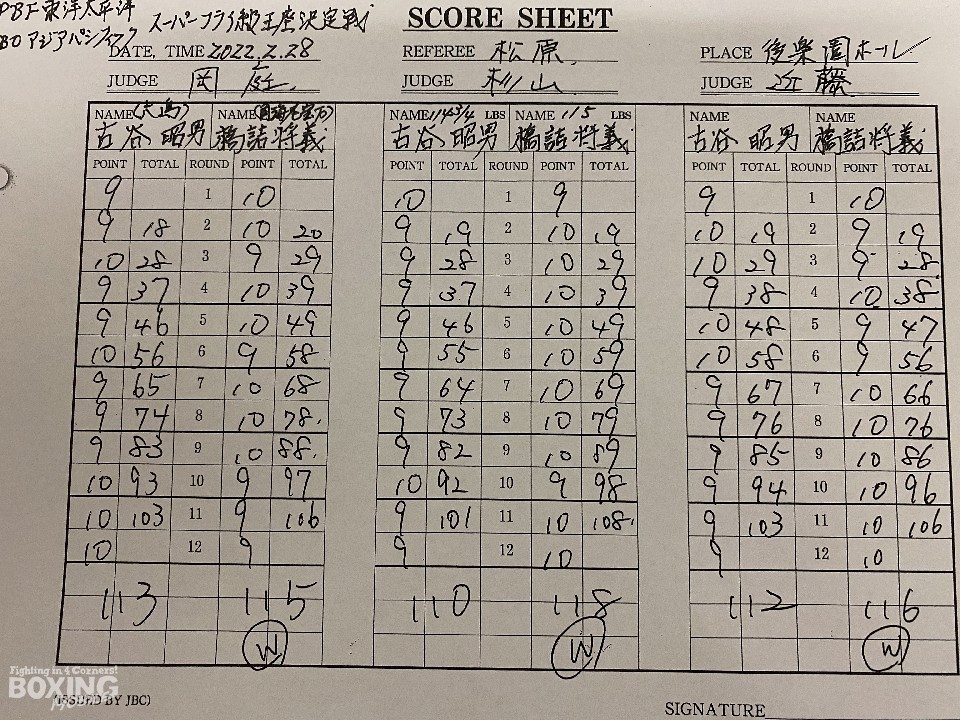 PBF東洋太平洋
BOアジアパシフィック スーパーフライ級王座決定戦
SCORE SHEET
DATE, TIME 2022.2.28 REFEREE 松原 PLACE 後楽園ホール
JUDGE 岡庭 JUDGE 杉山 JUDGE 近藤
NAME NAME NAME 114 3/4 LBS NAME 115 LBS NAME NAME
古谷昭男 橋詰将義 古谷昭男 橋詰将義 古谷昭男 橋詰将義
POINT TOTAL ROUND POINT TOTAL POINT TOTAL ROUND POINT TOTAL POINT TOTAL ROUND POINT TOTAL
9 1 10 10 1 9 9 1 10
9 18 2 10 20 9 19 2 10 19 10 19 2 9 19
10 28 3 9 29 9 28 3 10 29 10 29 3 9 28
9 37 4 10 39 9 37 4 10 39 9 38 4 10 38
9 46 5 10 49 9 46 5 10 49 10 48 5 9 47
10 56 6 9 58 9 55 6 10 59 10 58 6 9 56
9 65 7 10 68 9 64 7 10 69 9 67 7 10 66
9 74 8 10 78 9 73 8 10 79 9 76 8 10 76
9 83 9 10 88 9 82 9 10 89 9 85 9 10 86
10 93 10 9 97 10 92 10 9 98 9 94 10 10 96
10 103 11 9 106 9 101 11 10 108 9 103 11 10 106
10 12 9 9 12 10 9 12 10
113 115 110 118 112 116
W W W
Fighting in 4 Corners!
BOXING
(ISSUED BY JBC)
SIGNATURE